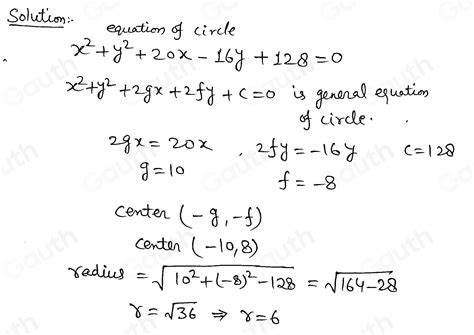 Solution:-
equation of circle
x² + y² + 20x - 16y + 128 = 0
x² + y² + 2gx + 2fy + c = 0 is general equation
of circle.
2gx = 20x , 2fy = -16y c = 128
g = 10 f = -8
center (-g, -f)
center (-10, 8)
radius = √(10² + (-8)² - 128) = √(164 - 28)
r = √36 ⇒ r = 6